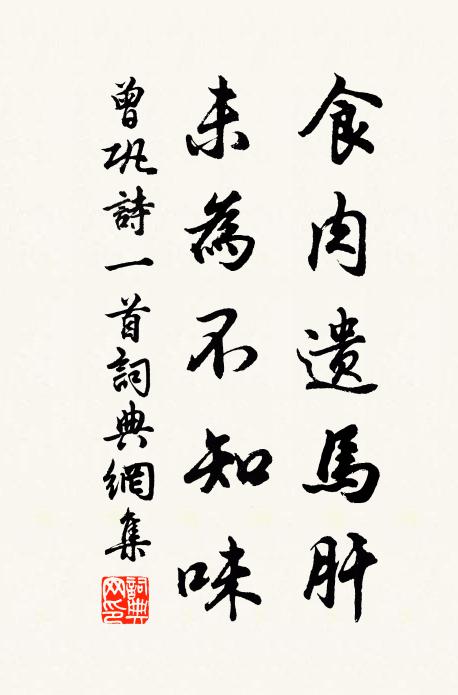 食肉遺馬肝
未為不知味
曾巩詩一首詞典網集
詞典網印